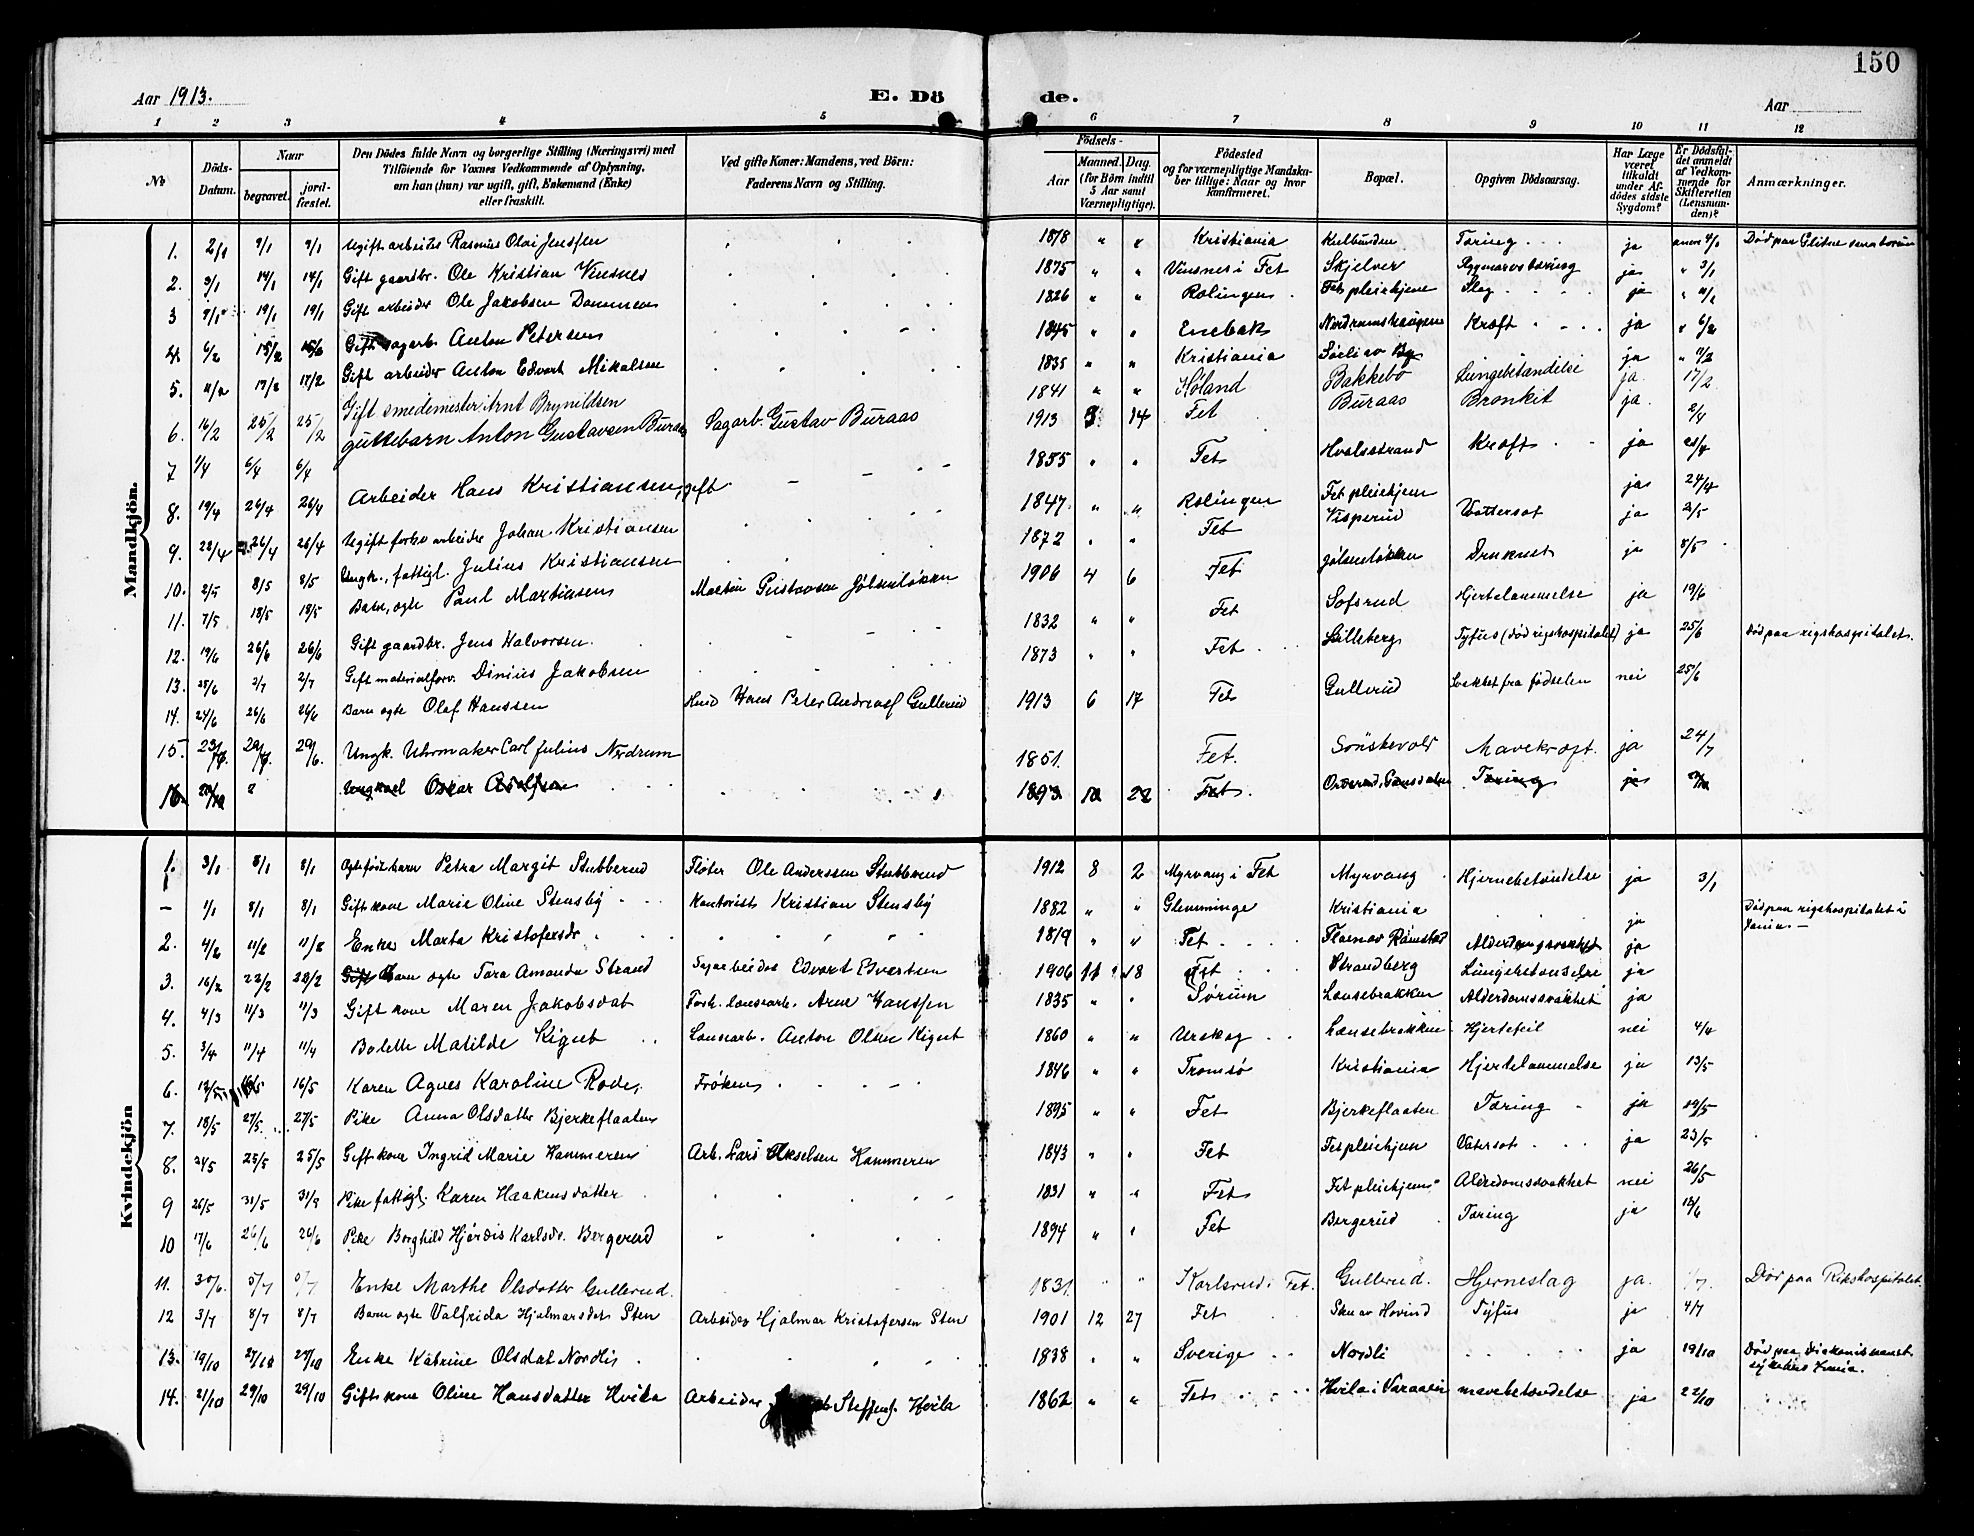 150
Aar 1913.
E. Dö
de.
Aar
1 2 3 4 5 6 7 8 9 10 11 12
No
Döds-Datum.
Naar
begravet.
jordfæstet.
Den Dödes fulde Navn og borgerlige Stilling (Næringsvei) med
Tilföiende for Voxnes Vedkommende af Oplysning,
om han (hun) var ugift, gift, Enkemand (Enke)
eller fraskilt.
Ved gifte Koner: Mandens, ved Börn:
Faderens Navn og Stilling.
Födsels-
Aar
Maaned. Dag.
(for Börn indtil
5 Aar samt
Værnepligtige).
Födested
og for værnepligtige Mandska-
ber tillige: Naar og hvor
konfirmeret.
Bopæl.
Opgiven Dödsaarsag.
Har Læge
været
tilkaldt
under Af-
dödes sidste
Sygdom?
Er Dödsfal-
det anmeldt
af Vedkom-
mende for
Skifteretten
(Lensman-
den)?
Anmærkninger.
Mandkjön.
1. 2/1 9/1 9/1 Ugift arbeider Rasmus Olai Jenssen 1878 " " Kristiania Tæring ja Död paa Glitne sanatorium
2. 3/1 14/1 14/1 Gift gaardbr. Ole Kristian Vinsnes 1875 " " Vinsnes i Fet Skjelver Rygmarvstæring ja " 3/1
3 9/1 19/1 19/1 Gift arbeider Ole Jakobsen Dammen 1826 " " Rælingen Fet pleiehjem Slag ja
4. 6/2 15/2 15/2 Gift sagarb. Anton Petersen 1845 " " Enebak Nordramshaugen Kræft ja " 6/2
5. 11/2 17/2 17/2 Gift arbeider Anton Edvart Mikalsen 1835 " " Kristiania Sørli av By ja " 11/2
Gift smedemester Arnt Brynildsen 1841 " " Høland Bakkebo Lungebetændelse ja 17/2
6. 16/2 25/2 25/2 guttebarn Anton Gustavsen Buraas Sagarb. Gustav Buraas 1913 3 14 Fet Buraas Bronkit ja 2/4
7 1/4 6/4 6/4 1855 " " Fet Hvalsstrand Kræft ja 21/4
8. 19/4 26/4 26/4 Arbeider Hans Kristiansen, gift 1847 " " Rælingen Fet pleiehjem ja 24/4
9. 22/4 26/4 26/4 Ugift forhv arbeider Johan Kristiansen 1872 " " Fet Visperud Vattersot ja 2/5
10. 2/5 8/5 8/5 Ungk., fattigl. Julius Kristiansen 1906 4 6 Fet Jølsenløkken Druknet ja 8/5
11. 7/5 18/5 18/5 Barn, ogte Paul Martinsen Martin Gustavsen Jølsenløkken 1832 " " Fet Sofsrud Hjertelammelse ja 19/6
12. 19/6 26/6 26/6 Gift gaardbr. Jens Halvorsen 1873 " " Fet Lilleberg Tyfus (död rigshospitalet) ja 25/6 Död paa rigshospitalet.
13. 25/6 2/7 2/7 Gift materialforv. Dinius Jakobsen
14. 24/6 26/6 26/6 Barn ogte Olaf Hanssen Hans Peter Andreas Gullerud 1913 6 17 Fet Gullerud Svakhet fra födselen nei 25/6
15 23/6 29/6 29/6. Ungk. Uhrmaker Carl Julius Nordrum 1851. Fet. Sönstevold Mavekræft. ja 24/7
16. Ungkarl Oskar Adolfsen 1893 10 22 Fet. Tæring ja
Kvindekjön
1. 3/1 8/1 8/1 Petra Margit Stubberud Fløter Ole Anderssen Stubberud 1912 8 2 Myrvang i Fet Myrvang Hjernebetændelse ja 3/1
– 1/1 8/1 8/1 Gift kone Marie Oline Stensby Kontorist Kristian Stensby 1882 " " Glemminge Kristiania ja Död paa rigshospitalet i
2. 4/2 11/2 11/2 Enke Marta Kristofersdr. 1819 " " Fet Ramstad Alderdomssvakhet ja
3. 16/2 22/2 22/2 Barn ogte Tora Amanda Strand Sagarbeider Edvart Edvartsen 1906 11 18 Fet Strandberg Lungebetændelse ja
4. 4/3 11/3 11/3 Gift kone Maren Jakobsdat Forh. lensearb. Arne Hanssen 1835 " " Sørum Lensebrakken Alderdomssvakhet ja
5. 3/4 11/4 11/4 Bolette Matilde Kignet Lensearb. Anton Olsen Kignet 1860 " " Urskog Lensebrakken Hjertefeil nei 4/4
6. 12/5 16/5 16/5 Karen Agnes Karoline Rode, Frøken 1846 " " Tromsø Kristiania Hjertelammelse ja 13/5
7. 18/5 27/5 27/5 Pike Anna Olsdatter Bjerkeflaaten 1895 " " Fet Bjerkeflaaten Tæring ja 19/5
8. 24/5 25/5 25/5 Gift kone Ingrid Marie Hammeren Arb. Lars Akselsen Hammeren 1843 " " Fet pleiehjem Vatersot ja 23/5
9 26/5 31/5 31/5 Pike fattigl. Karen Haakensdatter 1831 " " Fet Fet pleiehjem Alderdomssvakhet nei 26/5
10 17/6 26/6 26/6 Pike Borghild Hjördis Karlsdr. Bergerud 1894 " " Fet Bergerud Tæring ja 18/6
11. 30/6. 5/7 5/7 Enke Marthe Olsdatter Gullerud. 1831. " " Karlsrud i Fet. Gullerud. Hjerneslag ja. Död paa Rikshospitalet.
12 3/7 8/7 8/7 Barn ogte Valfrida Hjalmarsdat Sten Arbeider Hjalmar Kristofersen Sten 1901 12 27 Fet Hovind Tyfus ja 4/7
13. 19/10 27/10 27/10 Enke Katrine Olsdat Nordli 1838 " " Sverige Nordli ja 19/10 Död paa Diakonissernes
sykehus
14. 21/10 29/10 29/10 Gift kone Oline Hansdatter Hvila Arbeider Steffens. Hvila 1862 " " Fet Hvila i Varaaen mavebetændelse ja 22/10